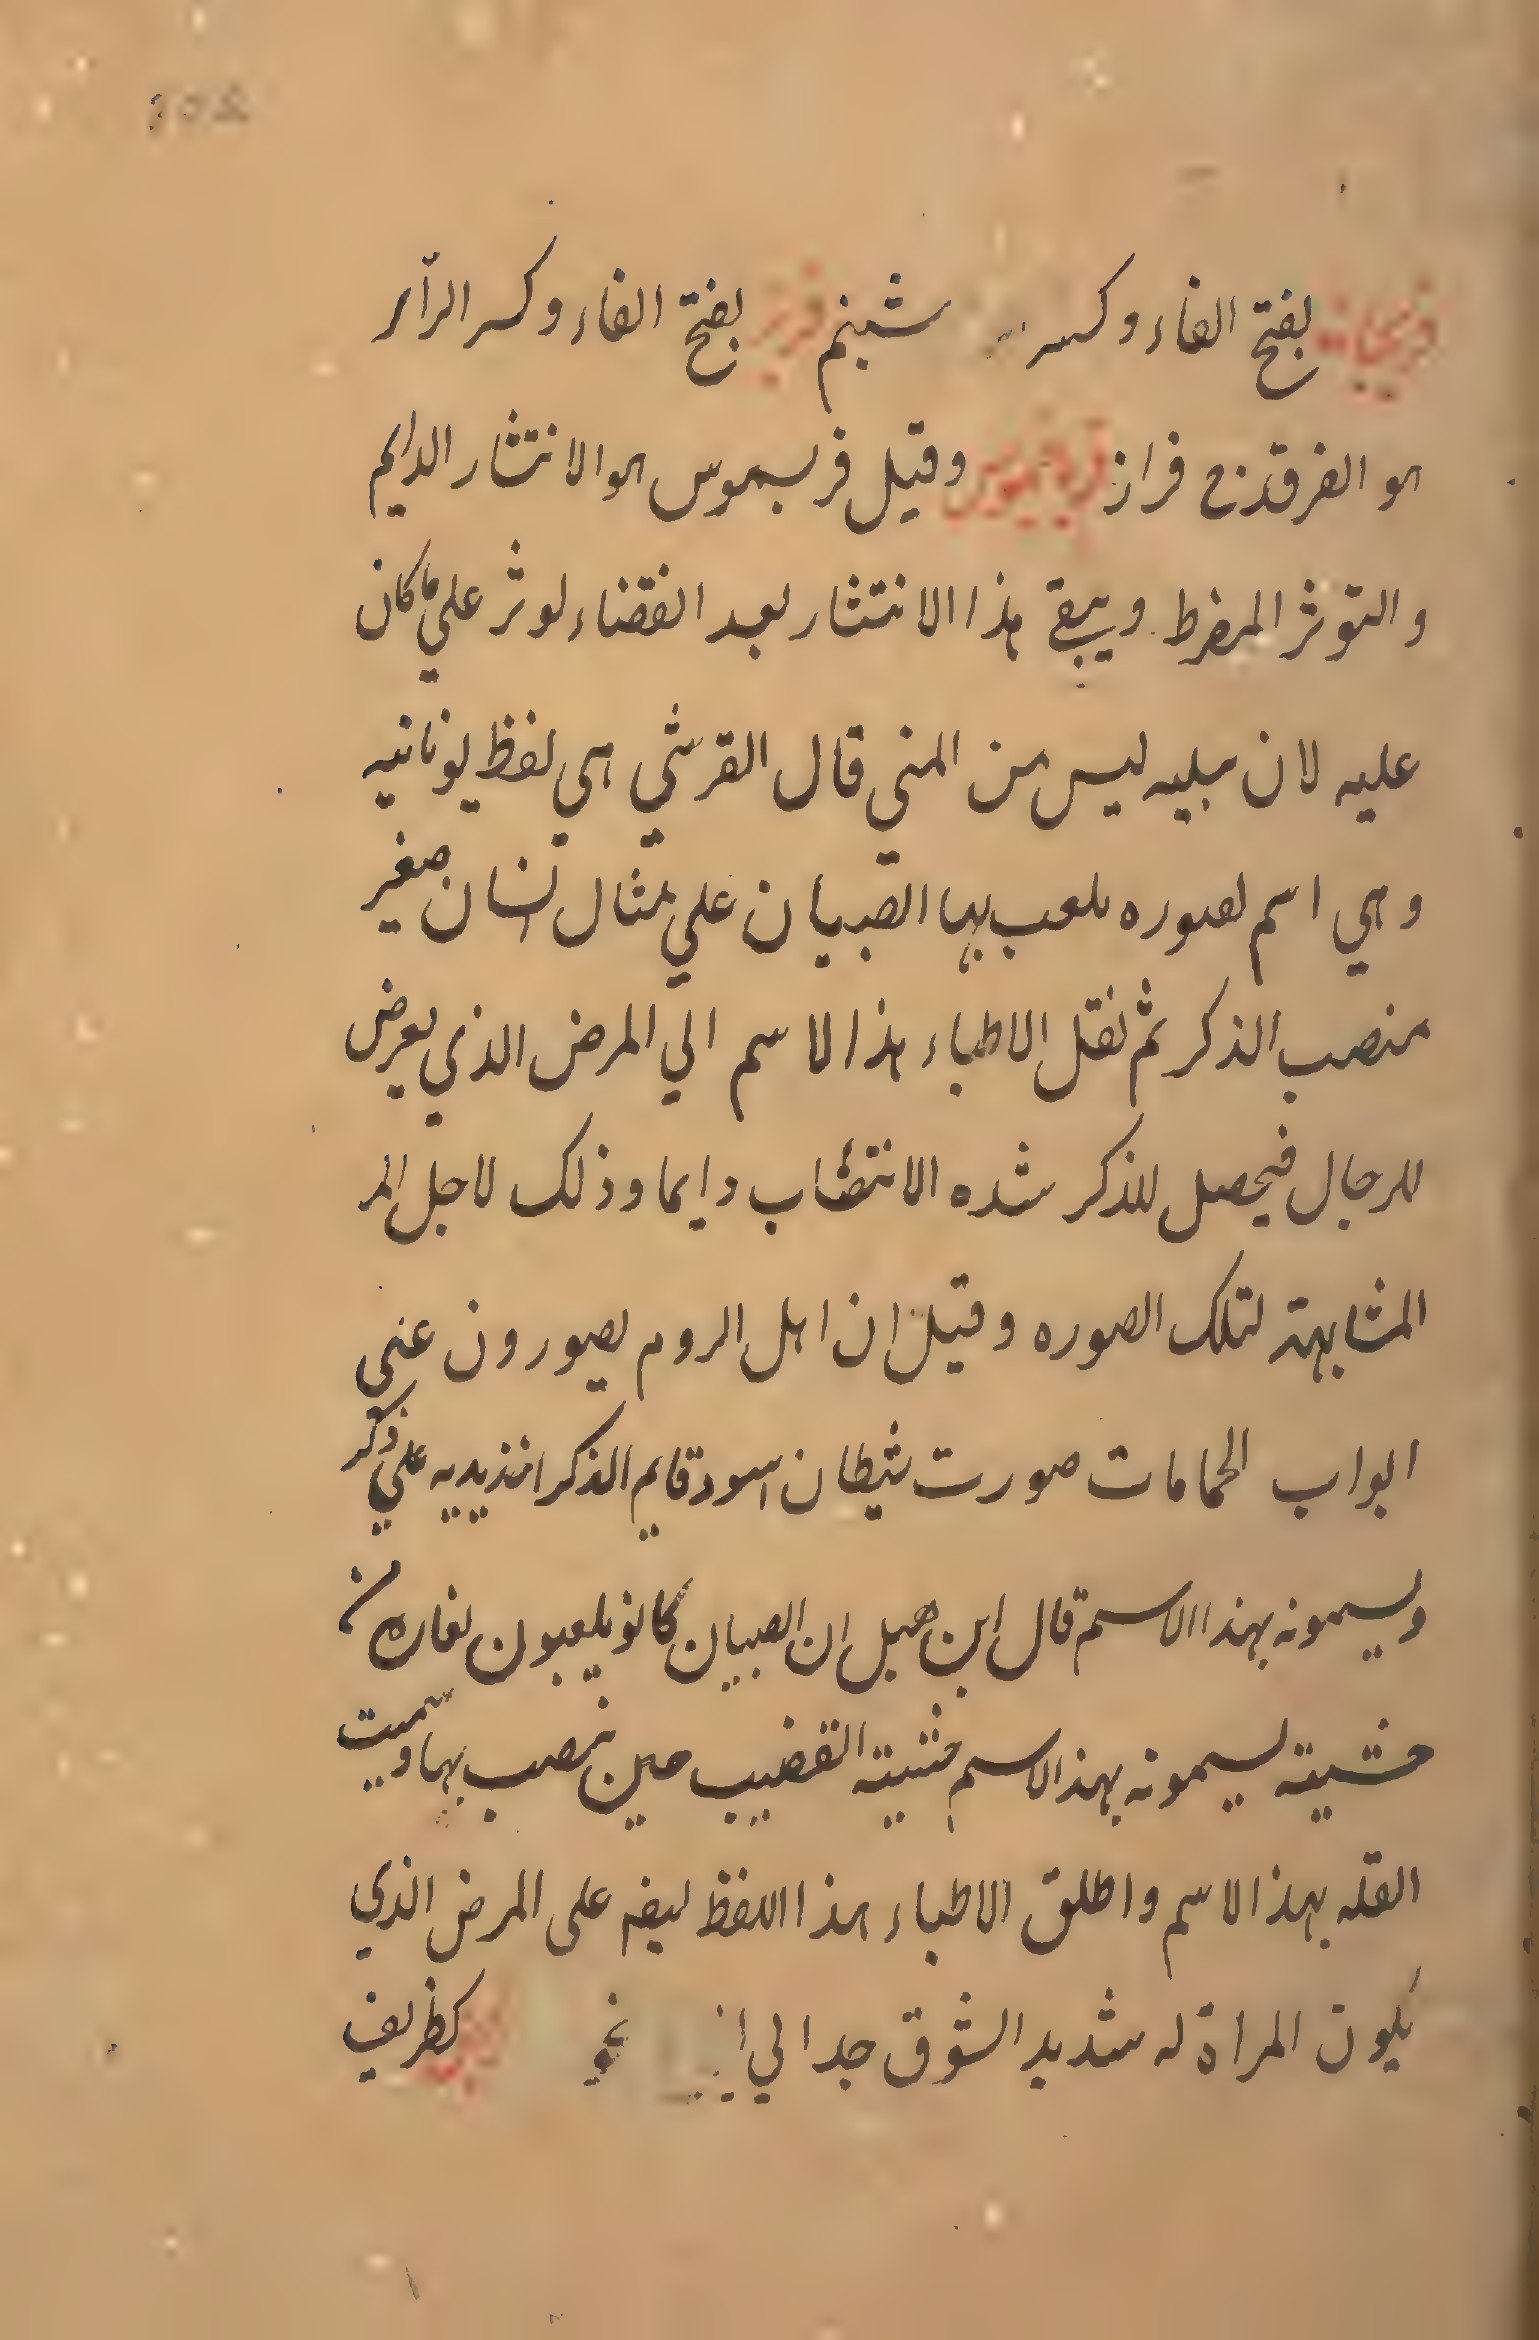 بفتح الفاء وكسر شبنم بفتح الفاء وكسر الرآء
هو الفرقدنح فراز وقيل فريسموس هو الانتشار الدايم
والتوثر المفرط ويبقي هذا الانتشار بعد انقضاء لوثر علي ما كان
عليه لان سببه ليس من المني قال القرشي هي لفظ يونانيه
وهي اسم لصوره يلعب بها الصبيان علي مثال انسان صغير
منصب الذكر ثم نقل الاطباء هذا الاسم الي المرض الذي يعرض
للرجال فيحصل للذكر شده الانتصاب دايما وذلك لاجل المر
المشابهة لتلك الصوره وقيل ان اهل الروم يصورون عني
ابواب الحمامات صورت شيطان اسود قايم الذكر اخذ يديه علي ذكر
ويسمونه بهذا الاسم قال ابن هبل ان الصبيان كانو يلعبون
خشبته يسمونه بهذا الاسم خشبته القضيب حين نصب بها وسميت
العله بهذا الاسم واطلق الاطباء هذا اللفظ ليفه على المرض الذي
يكون المراة له شديد الشوق جدا الي نحو كظريف